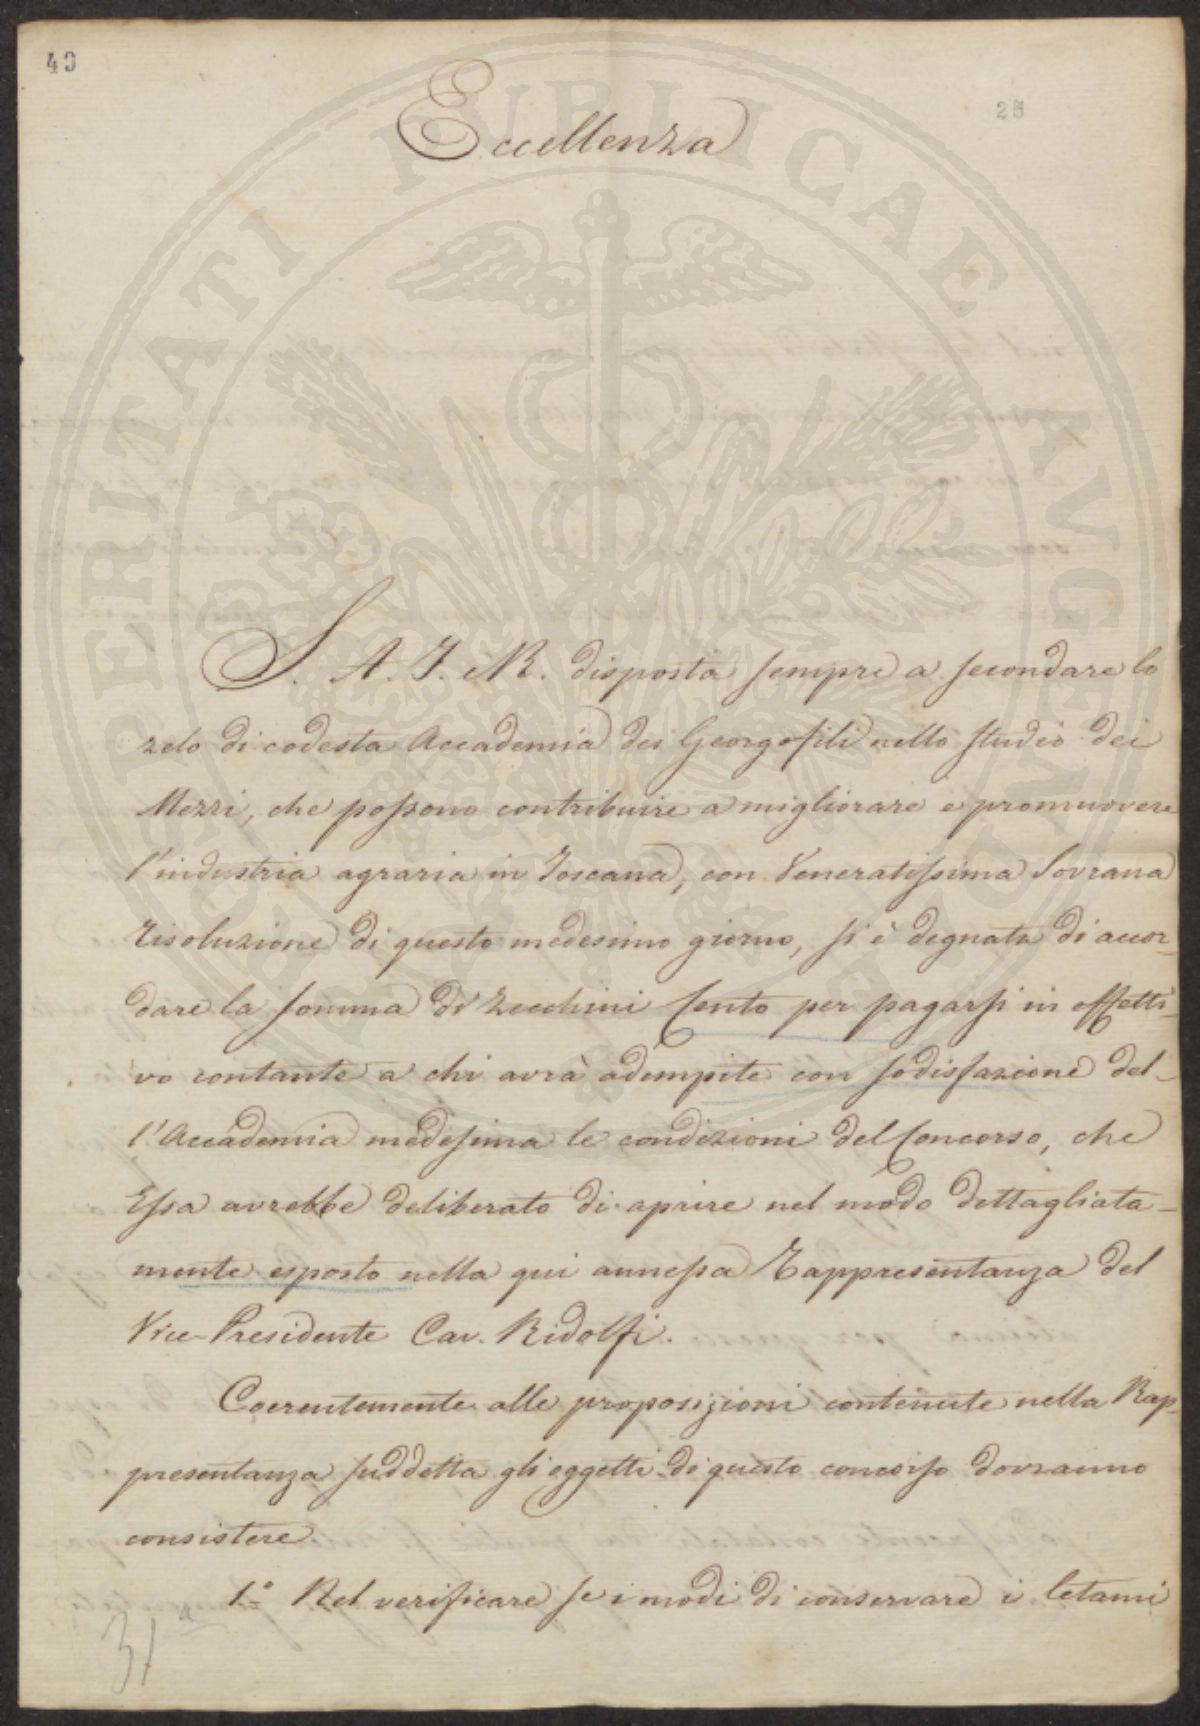 40
25
Eccellenza
S. A. I. e R. disposta sempre a secondare lo
zelo di codesta Accademia dei Georgofili nello studio dei
Mezzi, che possono contribuire a migliorare e promuovere
l'industria agraria in Toscana, con Veneratissima Sovrana
risoluzione di questo medesimo giorno, si è degnata di accor-
dare la somma di zecchini Cento per pagarsi in effetti-
vo contante a chi avrà adempite con sodisfazione del-
l'Accademia medesima le condizioni del Concorso, che
Essa avrebbe deliberato di aprire nel modo dettagliata-
mente esposto nella qui annessa Rappresentanza del
Vice-Presidente Cav. Ridolfi.
Coerentemente alle proposizioni contenute nella Rap-
presentanza suddetta gli oggetti di questo concorso dovranno
consistere
1.° Nel verificare se i modi di conservare i letami
31 a
PROSPERITATI PVBLICAE AVGENDAE